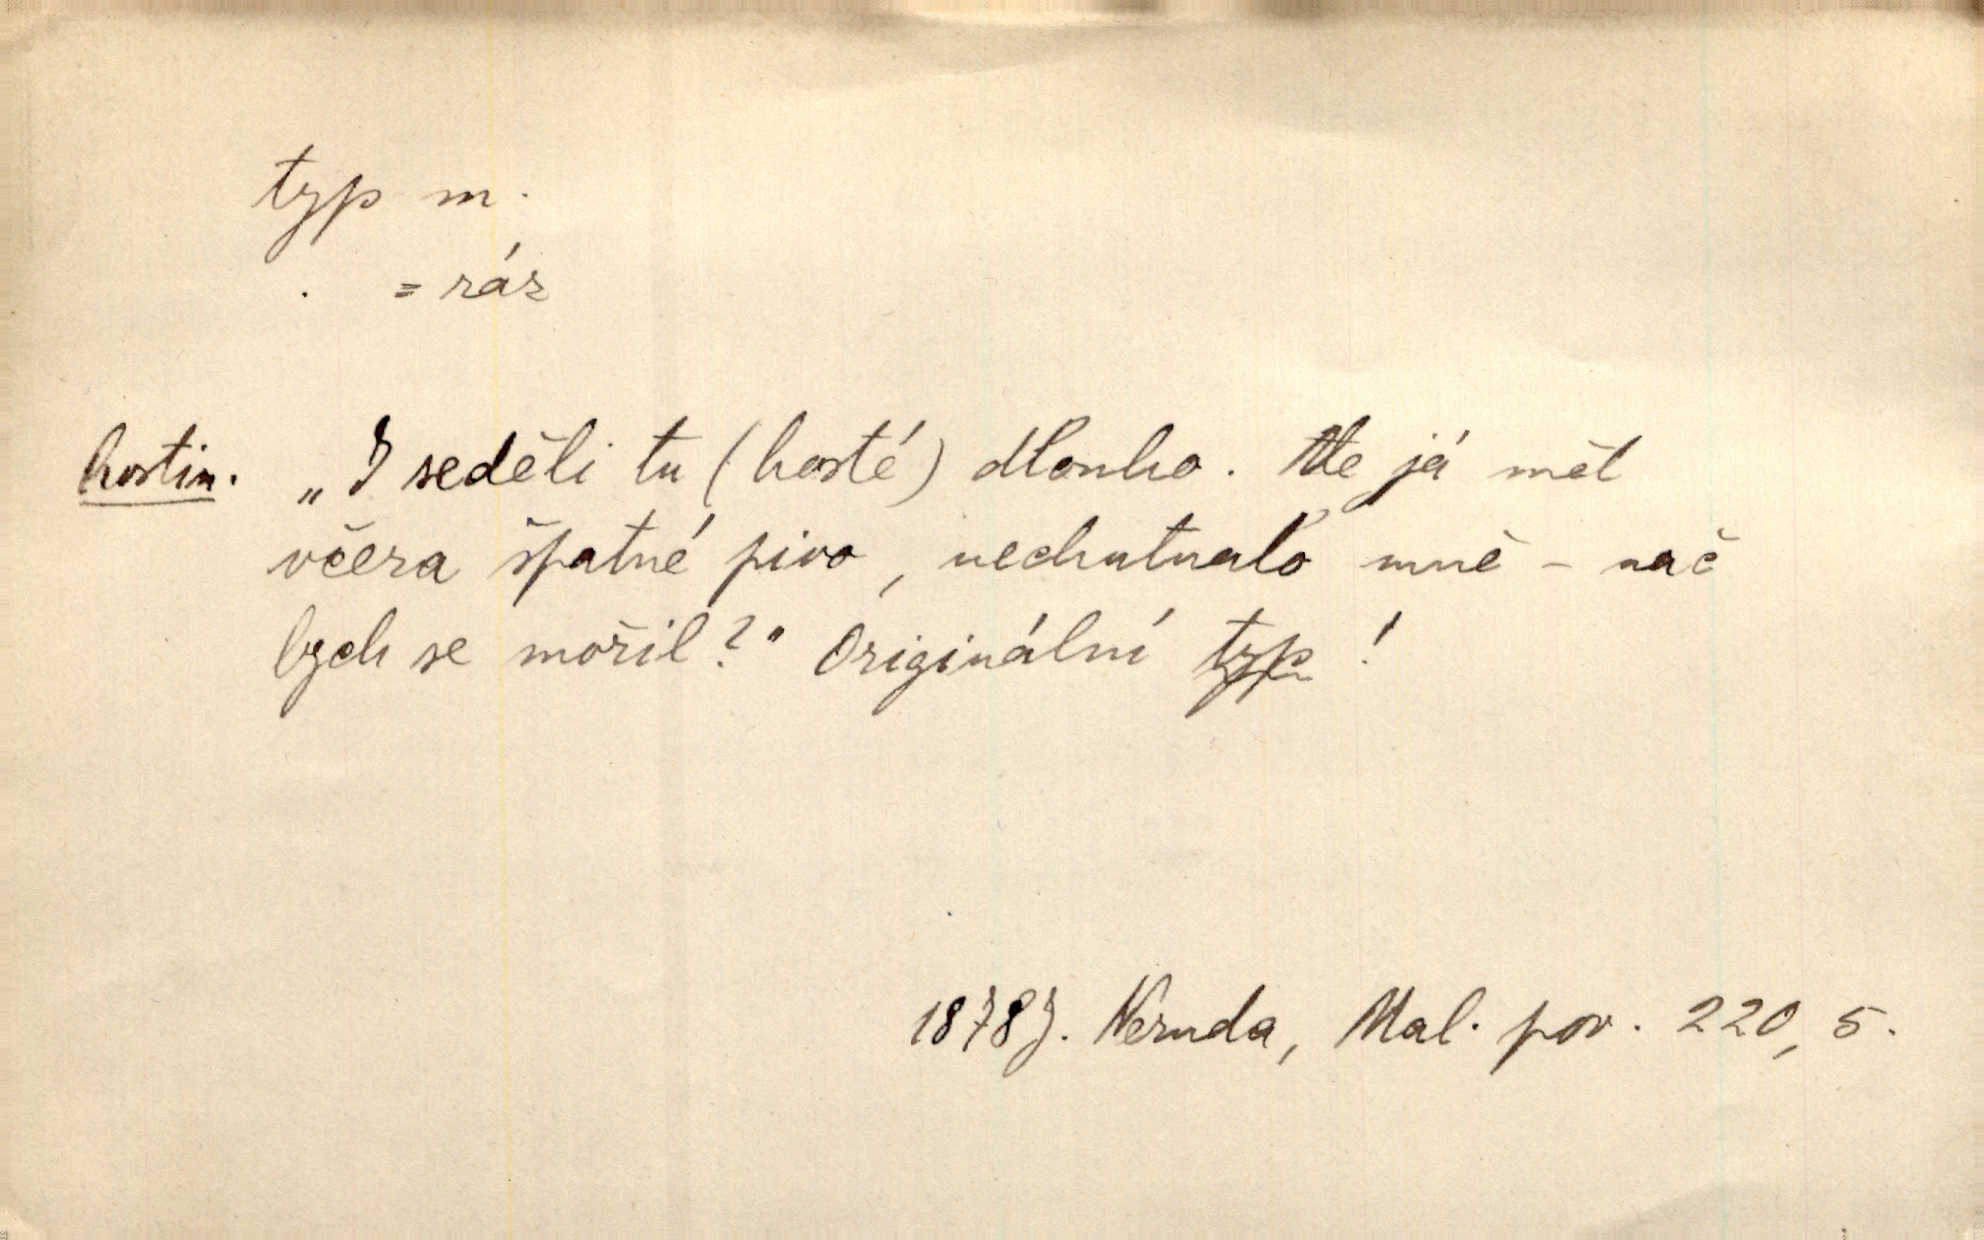 typ m.
= ráz
hostin. „I seděli tu (hosté) dlouho. Ale já měl
včera špatné pivo, nechutnalo mně – nač
bych se mořil?" Originální typ!
1878 J. Neruda, Mal. pov. 220, 5.